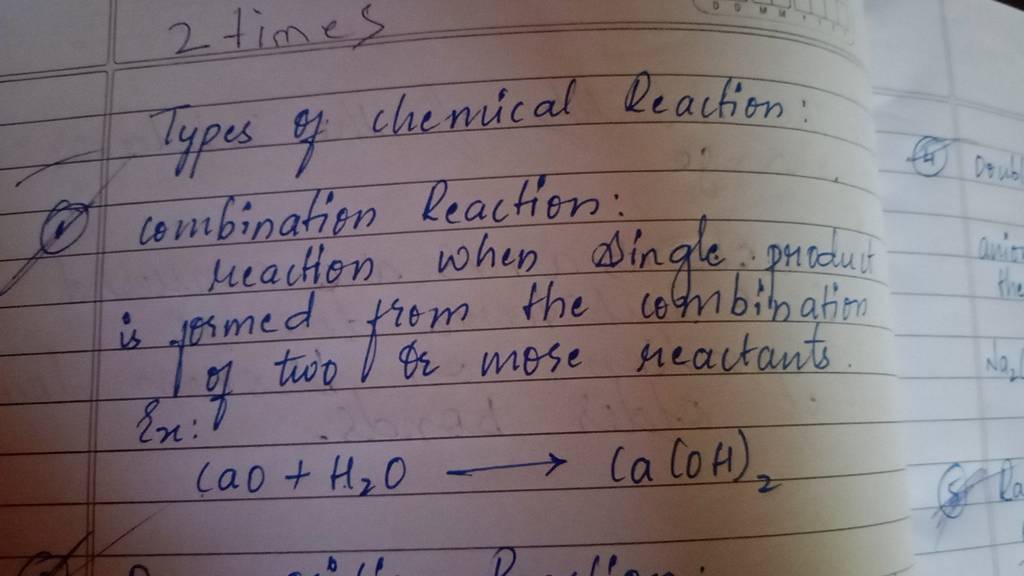 2 times
Types of chemical Reaction:
combination Reaction:
reaction when single product
is formed from the combination
of two or more reactants.
Ex:
CaO + H₂O ⟶ Ca(OH)₂
Reaction:
4
5